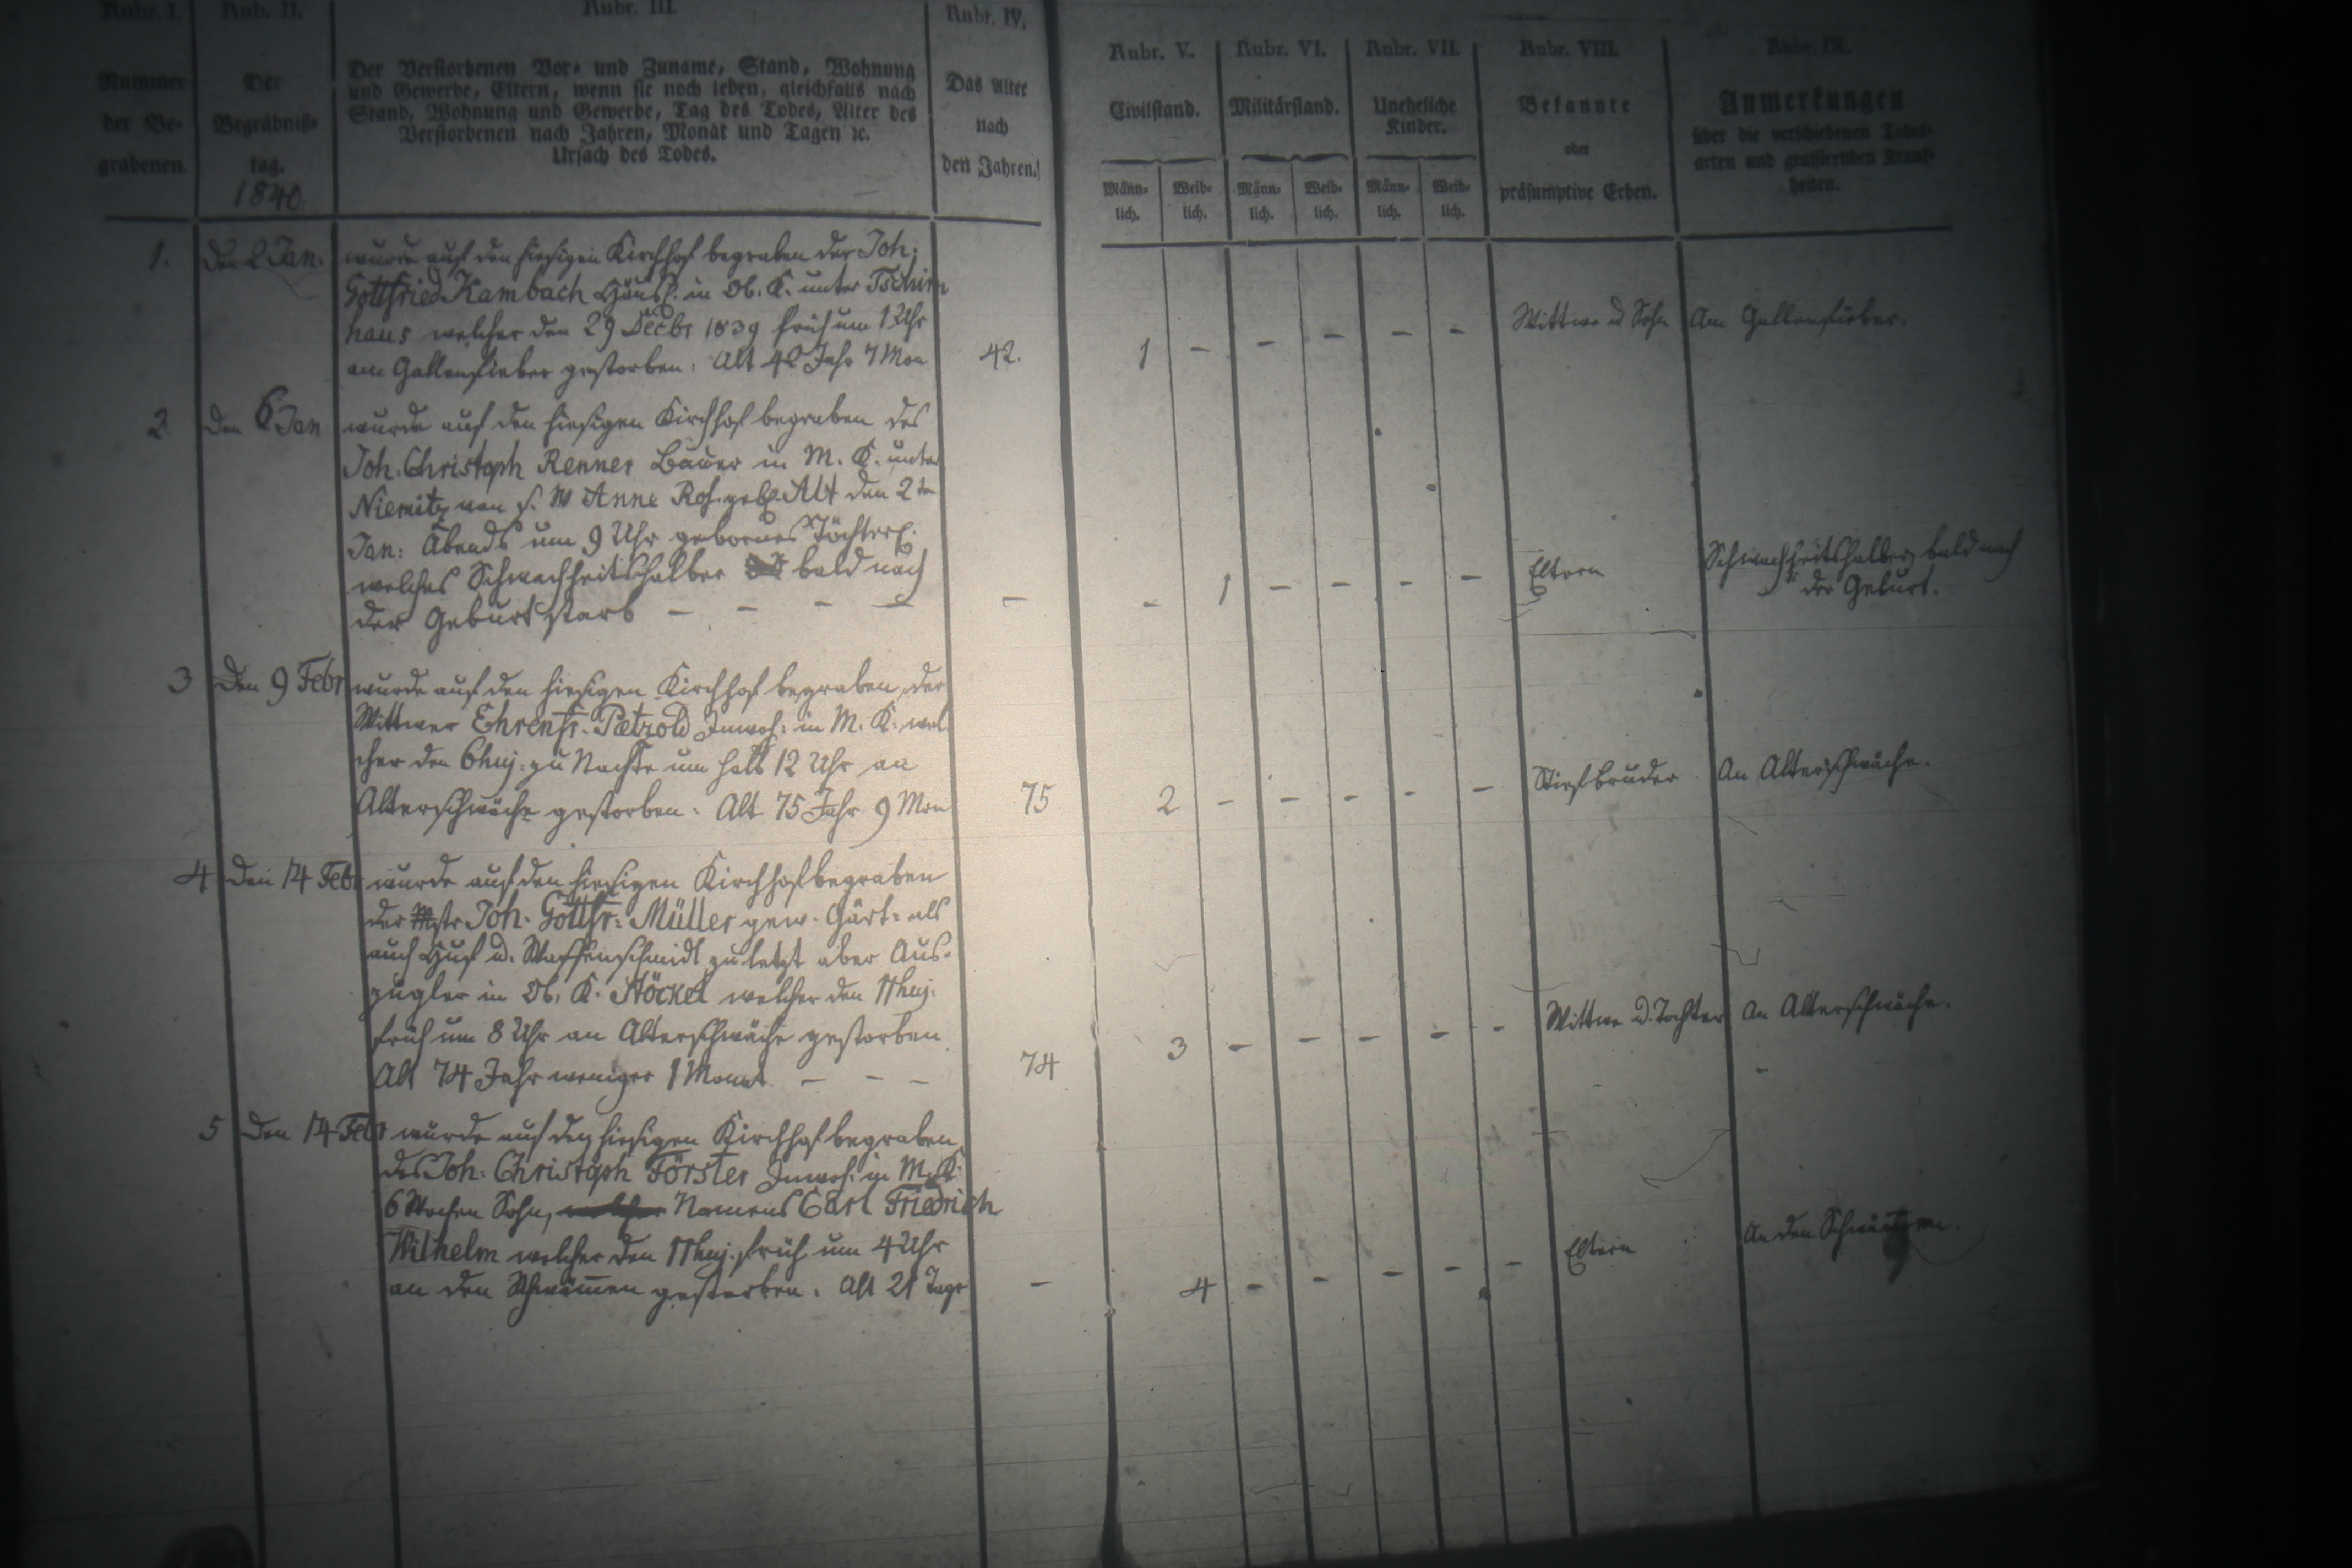 Rubr. I. Rub. II. Rubr. III. Rubr. IV. Rubr. V. Rubr. VI. Rubr. VII. Rubr. VIII. Rubr. IX.
Nummer der Be- grabenen.
Der Begräbniß- tag.
1840
Der Verstorbenen Vor- und Zuname, Stand, Wohnung
und Gewerbe, Eltern, wenn sie noch leben, gleichfalls nach
Stand, Wohnung und Gewerbe, Tag des Todes, Alter des
Verstorbenen nach Jahren, Monat und Tagen ꝛc.
Ursach des Todes.
Das Alter
nach
den Jahren.
Civilstand. Militärstand. Uneheliche
Kinder.
Männ- lich. Weib- lich. Männ- lich. Weib- lich. Männ- lich. Weib- lich.
Bekannte
oder
präsumptive Erben.
Anmerkungen
über die verschiedenen Todes-
arten und grassirenden Krank-
heiten.
1. Den 2 Jan: wurde auf den hiesigen Kirchhof begraben der Joh:
Gottfried Kambach Häusl. in Ob. K. unter Tschirn
haus welcher den 29 Decbr 1839 früh um 1 Uhr
am Gallenfieber gestorben: Alt 42 Jahr 7 Mon 42. 1 - - - - - Wittwe u Sohn Am Gallenfieber.
2. Den 6 Jan wurde auf den hiesigen Kirchhof begraben des
Joh. Christoph Renner Bauer in M. K. unter
Niemitz von s. W Anne Ros. geb. Alt den 2ten
Jan: Abends um 9 Uhr gebornes Töchterl.
welches Schwachheitshalber bald nach
der Geburt starb - - - - - - 1 - - - - Eltern Schwachheitshalber bald nach
der Geburt.
3 Den 9 Febr wurde auf den hiesigen Kirchhof begraben, der
Wittwer Ehrenfr. Pætzold Inwoh: in M. K. wel
cher den 6 huj: zu Nacht um halb 12 Uhr an
Alterschwäche gestorben: Alt 75 Jahr 9 Mon 75 2 - - - - - Stiefbruder An Alterschwäche.
4 Den 14 Febr wurde auf den hiesigen Kirchhof begraben
der Mstr Joh. Gottfr: Müller gew. Gärt: als
auch Huf u. Waffenschmidt zuletzt aber Aus-
zügler in Ob. K. Stöckel welcher den 11 huj.
früh um 8 Uhr an Alterschwäche gestorben
Alt 74 Jahr weniger 1 Monat. - - - 74 3 - - - - - Wittwe u. Tochter An Alterschwäche.
5 Den 14 Febr wurde auf den hiesigen Kirchhof begraben
des Joh: Christoph Förster Inwoh: in M. K.
6 Wochen Sohn, welcher Namens Carl Friedrich
Wilhelm welcher den 11 huj. früh um 4 Uhr
an den Schwämen gestorben: Alt 21 Tage - 4 - - - - - Eltern An den